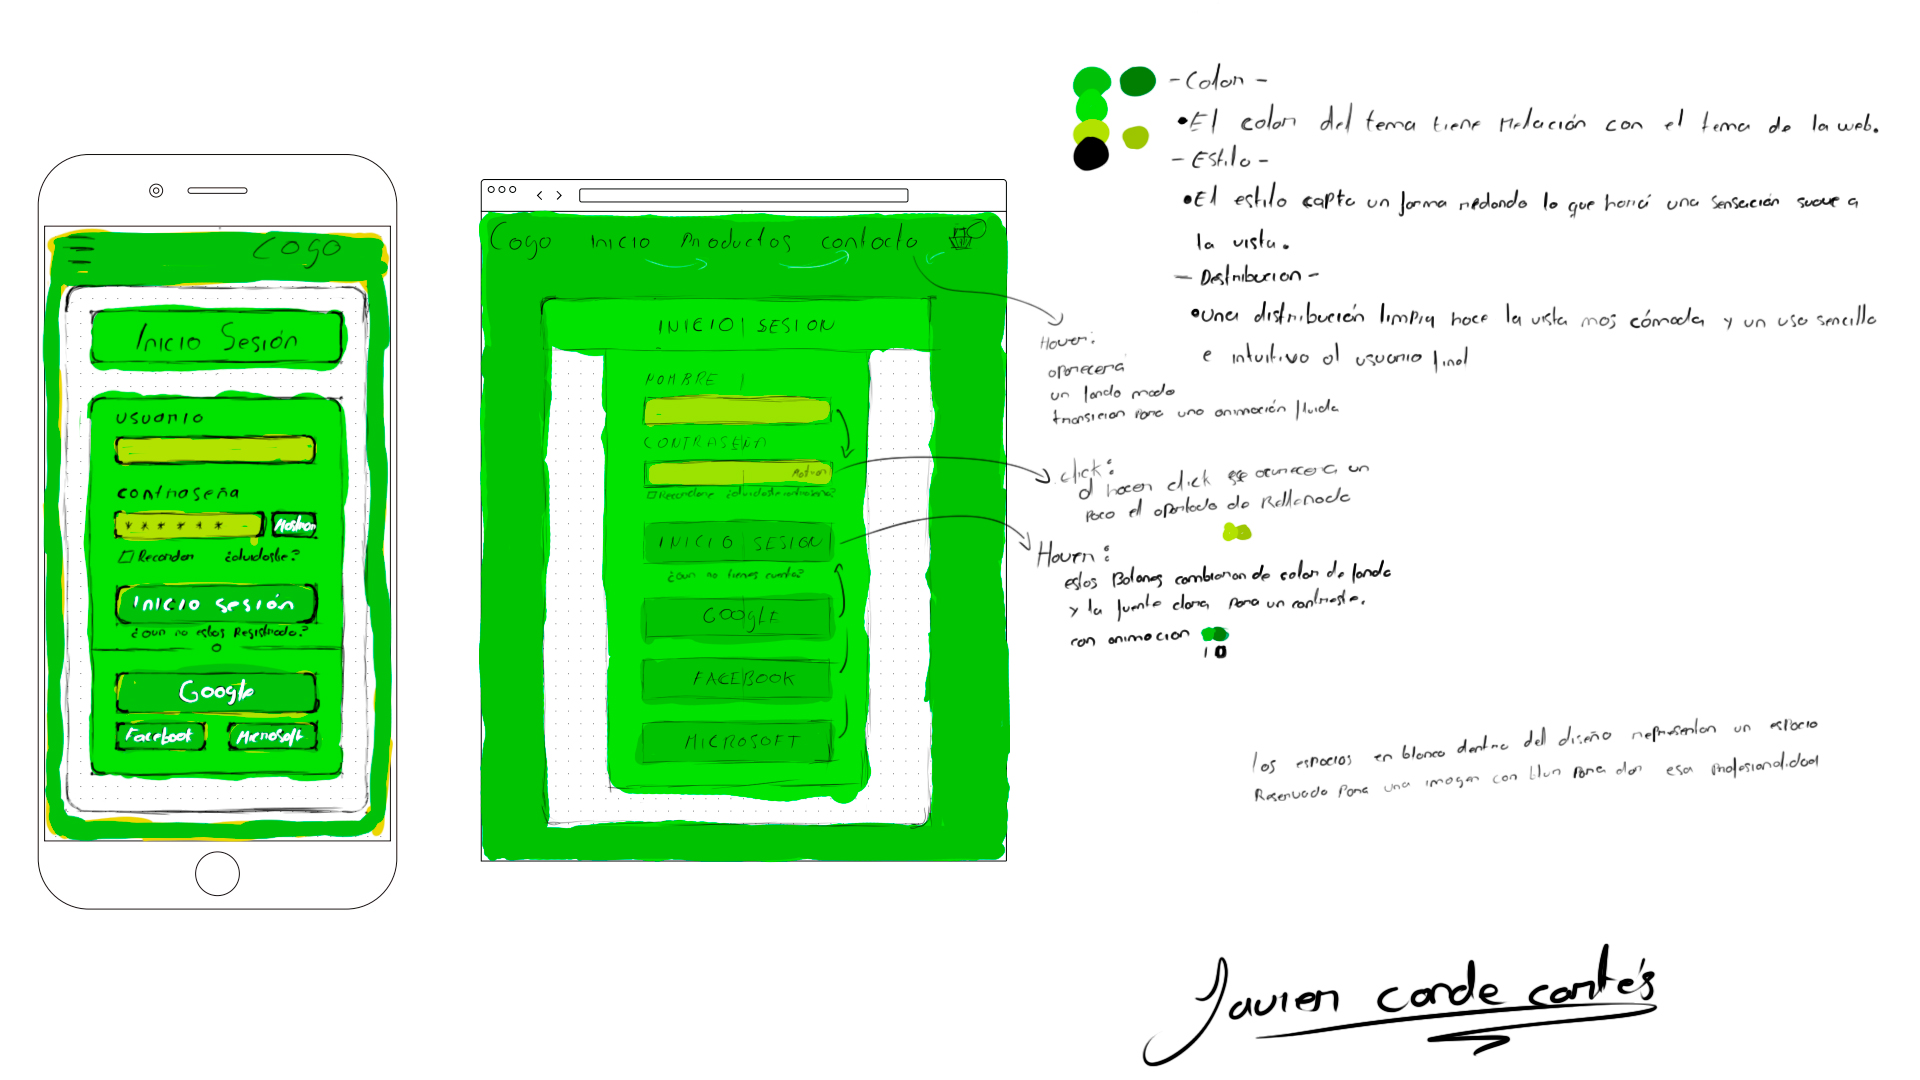 Cogo
Inicio Sesión
usuario
contraseña
* * * * * *
Mostrar
Recordar
¿olvidaste?
Inicio sesión
¿aun no estas Registrado?
O
Google
Facebook
Microsoft
Cogo
Inicio
Productos
contacto
INICIO SESION
NOMBRE
CONTRASEÑA
Recordar
¿olvidaste contraseña?
INICIO SESION
¿aun no tienes cuenta?
GOOGLE
FACEBOOK
MICROSOFT
- Color -
• El color del tema tiene relación con el tema de la web.
- Estilo -
• El estilo capta un forma redonda lo que hará una sensación suave a
la vista.
- Distribucion -
• una distribución limpia hace la vista mas cómoda y un uso sencillo
e intuitivo al usuario final
Hover:
aparecerá
un fondo modo
transicion para una animación fluida
click:
al hacer click se oscurecera un
poco el apartado de Rellenado
Hover:
estos Botones cambiaran de color de fondo
y la fuente clara para un contraste.
con animacion
los espacios en blanco dentro del diseño representan un espacio
Reservado para una imagen con blur para dar esa profesionalidad
Javier conde cortés